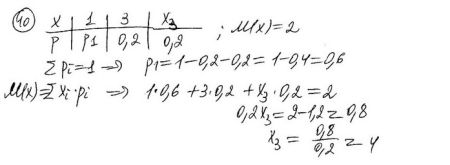 40 x 1 3 x₃ ; M(x)=2
P P1 0,2 0,2
Σpi=1 => P1=1-0,2-0,2=1-0,4=0,6
M(x)=Σxi·pi => 1·0,6+3·0,2+x₃·0,2=2
0,2x₃=2-1,2=0,8
x₃=0,8/0,2=4